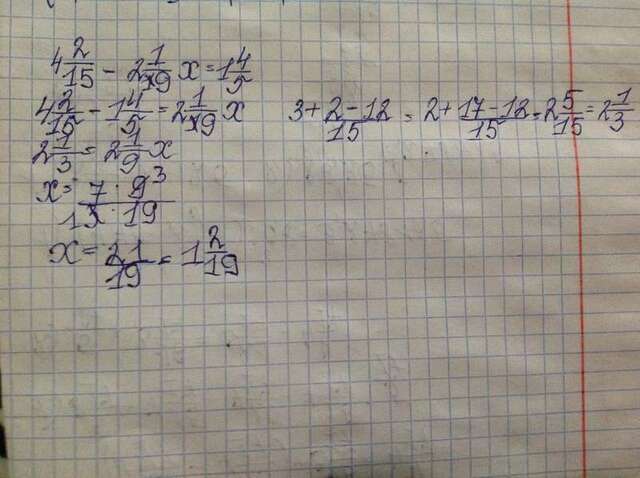 4 2/15 - 2 1/19 x = 1 4/5
4 2/15 - 1 4/5 = 2 1/19 x
3 + 2-12/15 = 2 + 17-12/15 = 2 5/15 = 2 1/3
2 1/3 = 2 1/9 x
x = 7 · 9 3/1 3 · 19
x = 21/19 = 1 2/19